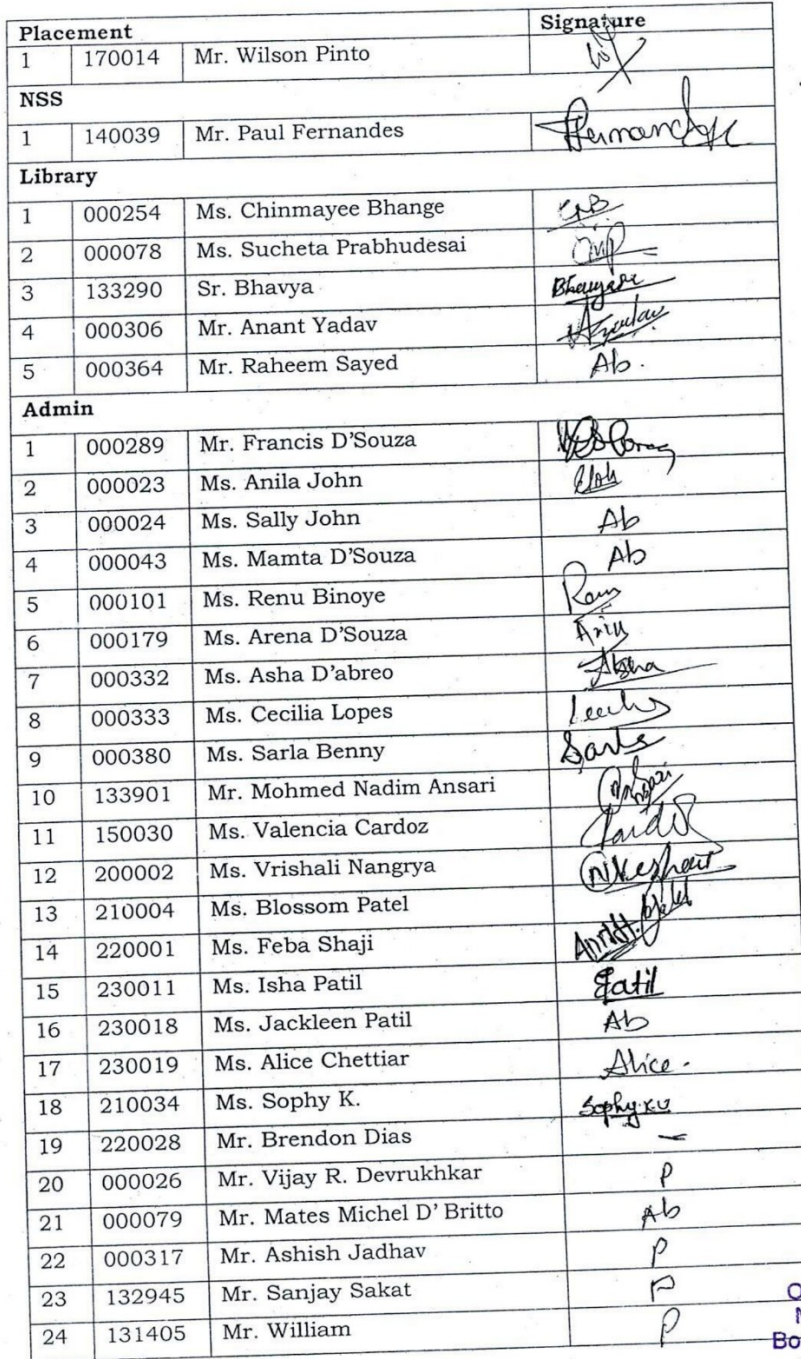 Placement Signature
1 170014 Mr. Wilson Pinto
NSS
1 140039 Mr. Paul Fernandes Fernandes
Library
1 000254 Ms. Chinmayee Bhange
2 000078 Ms. Sucheta Prabhudesai
3 133290 Sr. Bhavya
4 000306 Mr. Anant Yadav
5 000364 Mr. Raheem Sayed Ab.
Admin
1 000289 Mr. Francis D'Souza
2 000023 Ms. Anila John
3 000024 Ms. Sally John Ab
4 000043 Ms. Mamta D'Souza Ab
5 000101 Ms. Renu Binoye
6 000179 Ms. Arena D'Souza
7 000332 Ms. Asha D'abreo
8 000333 Ms. Cecilia Lopes
9 000380 Ms. Sarla Benny
10 133901 Mr. Mohmed Nadim Ansari
11 150030 Ms. Valencia Cardoz
12 200002 Ms. Vrishali Nangrya
13 210004 Ms. Blossom Patel
14 220001 Ms. Feba Shaji
15 230011 Ms. Isha Patil
16 230018 Ms. Jackleen Patil Ab
17 230019 Ms. Alice Chettiar Alice.
18 210034 Ms. Sophy K.
19 220028 Mr. Brendon Dias
20 000026 Mr. Vijay R. Devrukhkar P
21 000079 Mr. Mates Michel D' Britto Ab
22 000317 Mr. Ashish Jadhav P
23 132945 Mr. Sanjay Sakat P
24 131405 Mr. William P